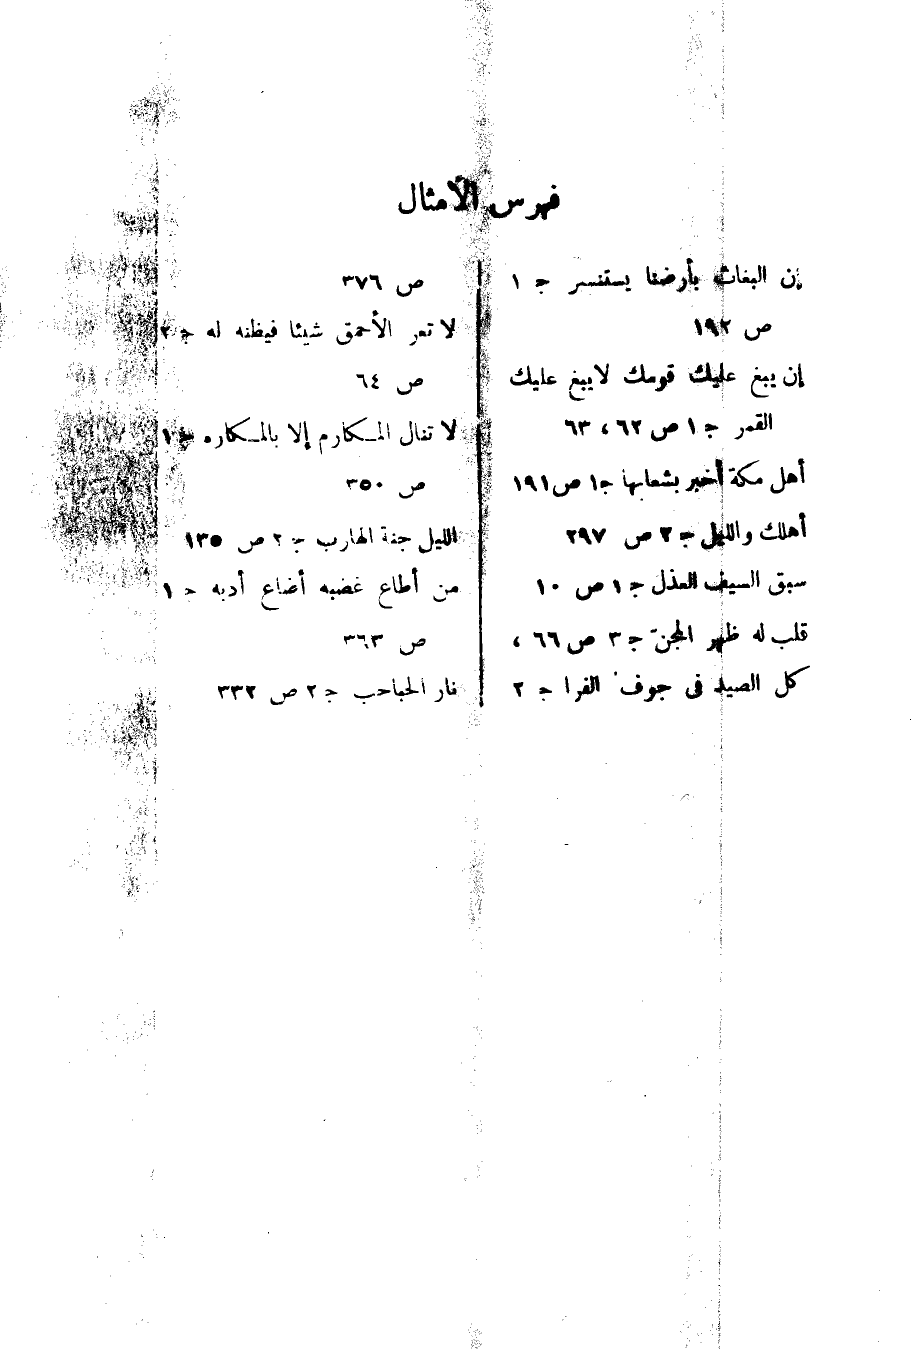 فهرس الأمثال
إن البغاث بأرضنا يستنسر ج ١
ص ١٩٢
إن يبغ عليك قومك لا يبغ عليك
القمر ج ١ ص ٦٢ ، ٦٣
أهل مكة أخبر بشعابها ج١ ص١٩١
أهلك والليل ج ٢ ص ٢٩٧
سبق السيف العذل ج ١ ص ١٠
قلب له ظهر المجنّ ج ٣ ص ٦٦ ،
كل الصيد فى جوف الفرا ج ٢
ص ٣٧٦
لا تعر الأحمق شيئا فيظنه له ج ٢
ص ٦٤
لا تنال المكارم إلا بالمكاره ج ١
ص ٣٥٠
الليل جنة الهارب ج ٢ ص ١٣٥
من أطاع غضبه أضاع أدبه ج ١
ص ٣٦٣
نار الحباحب ج ٢ ص ٣٣٢